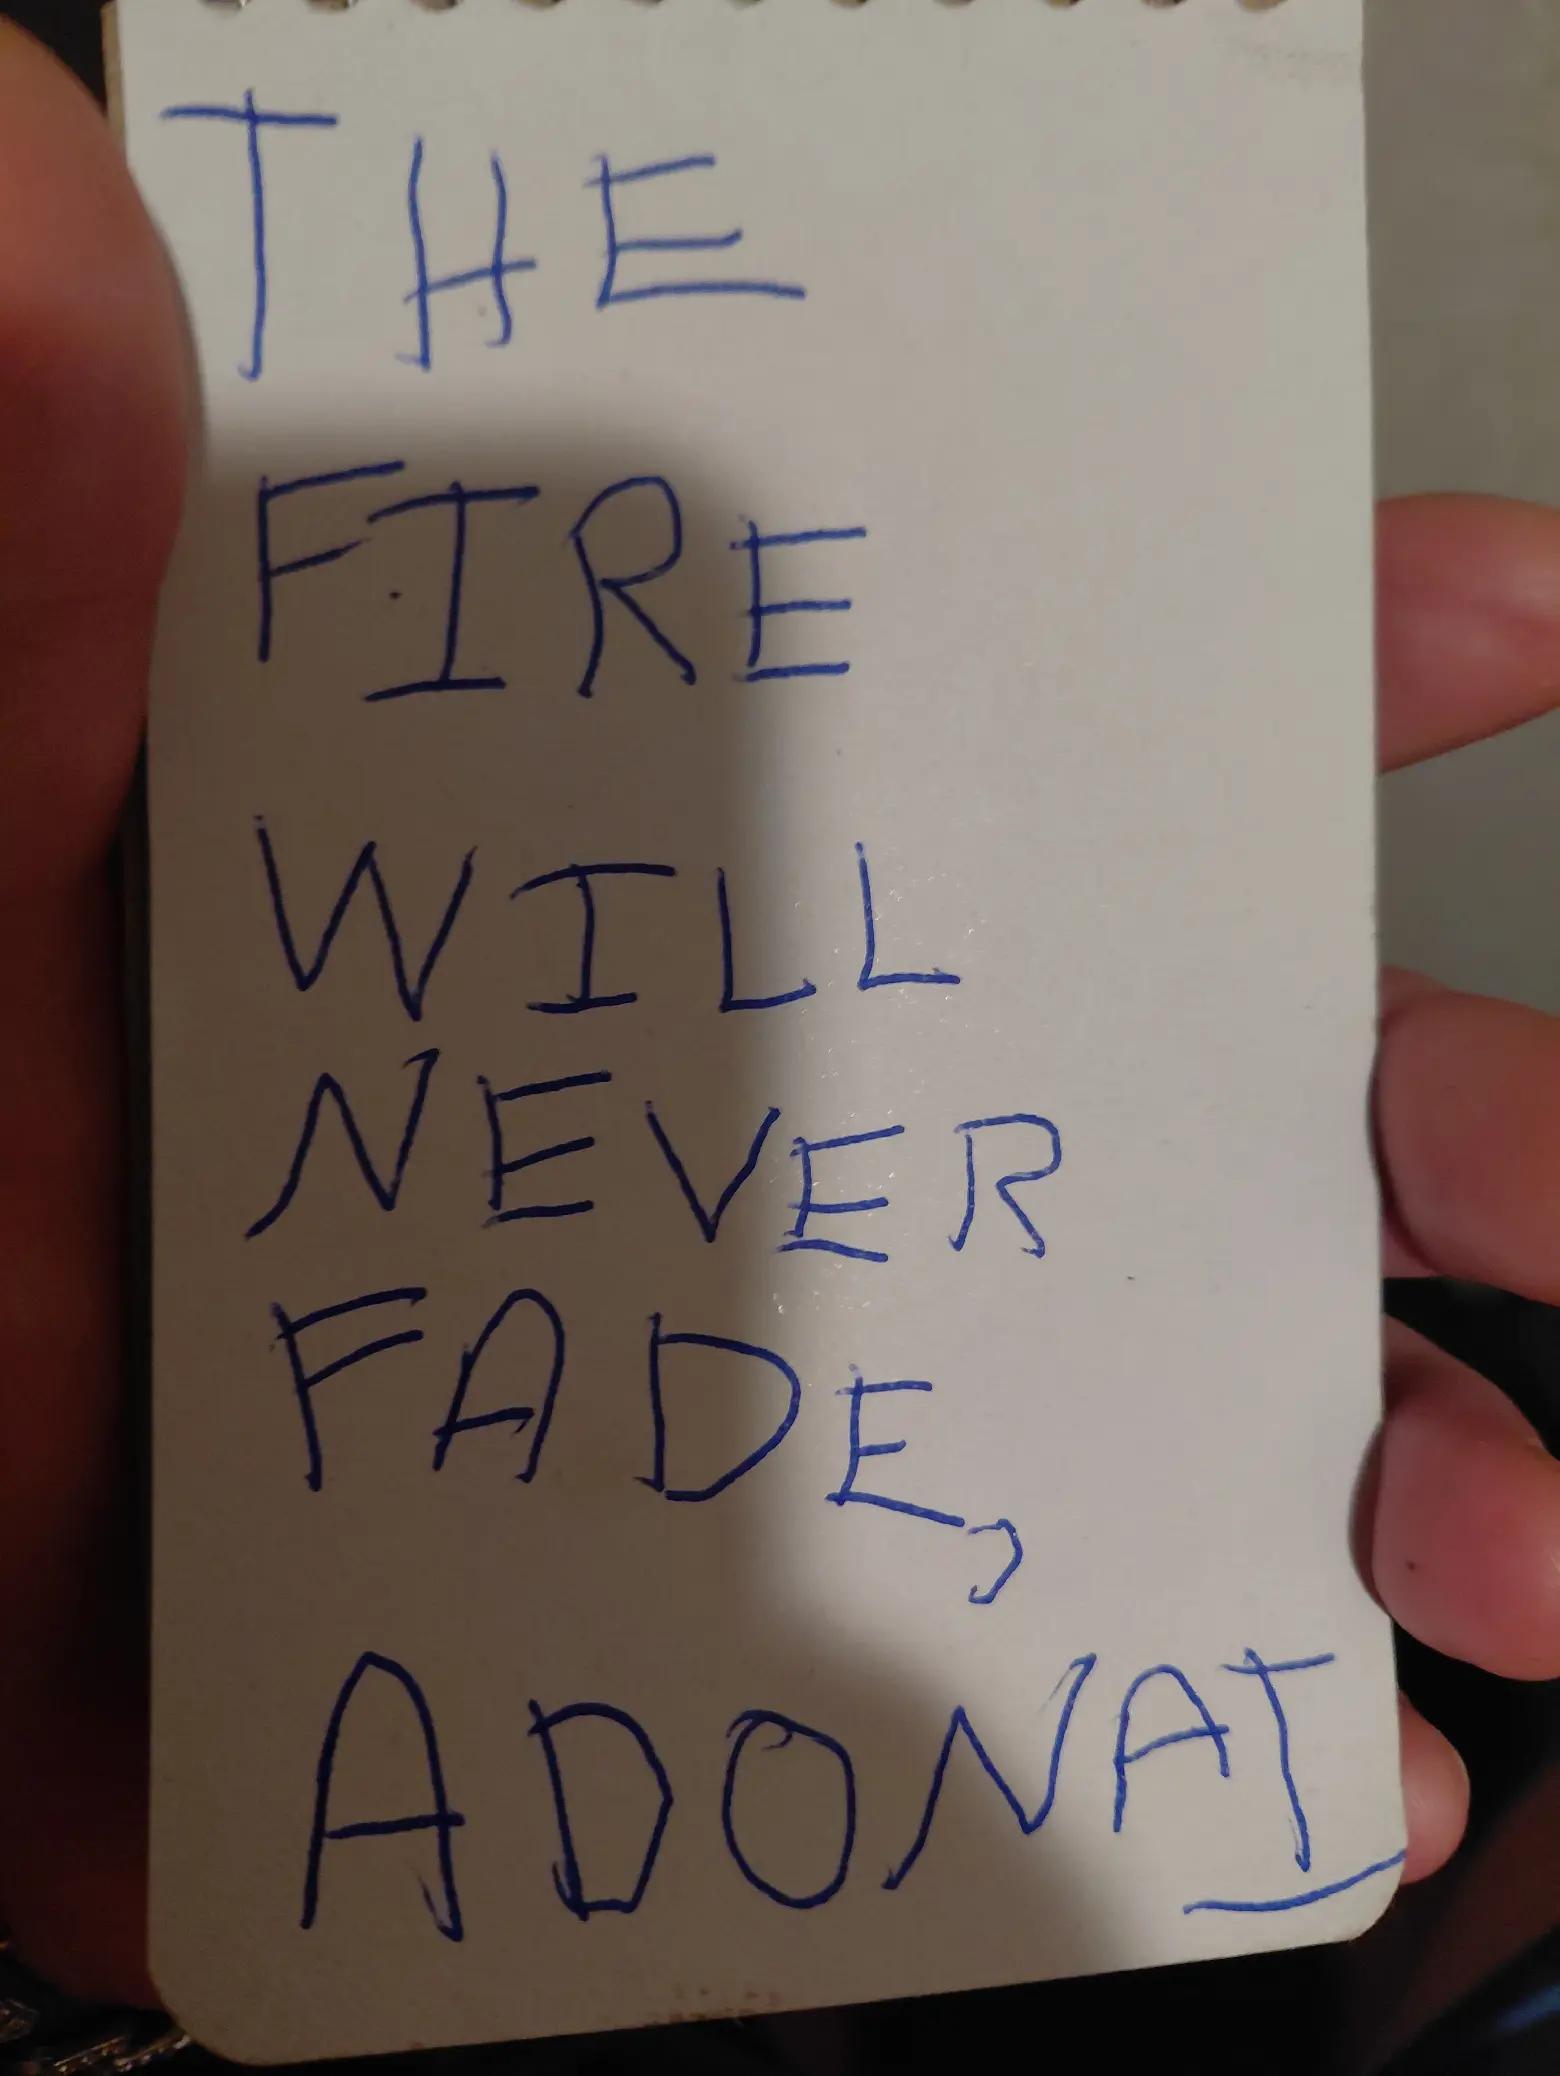 THE
FIRE
WILL
NEVER
FADE,
ADONAI